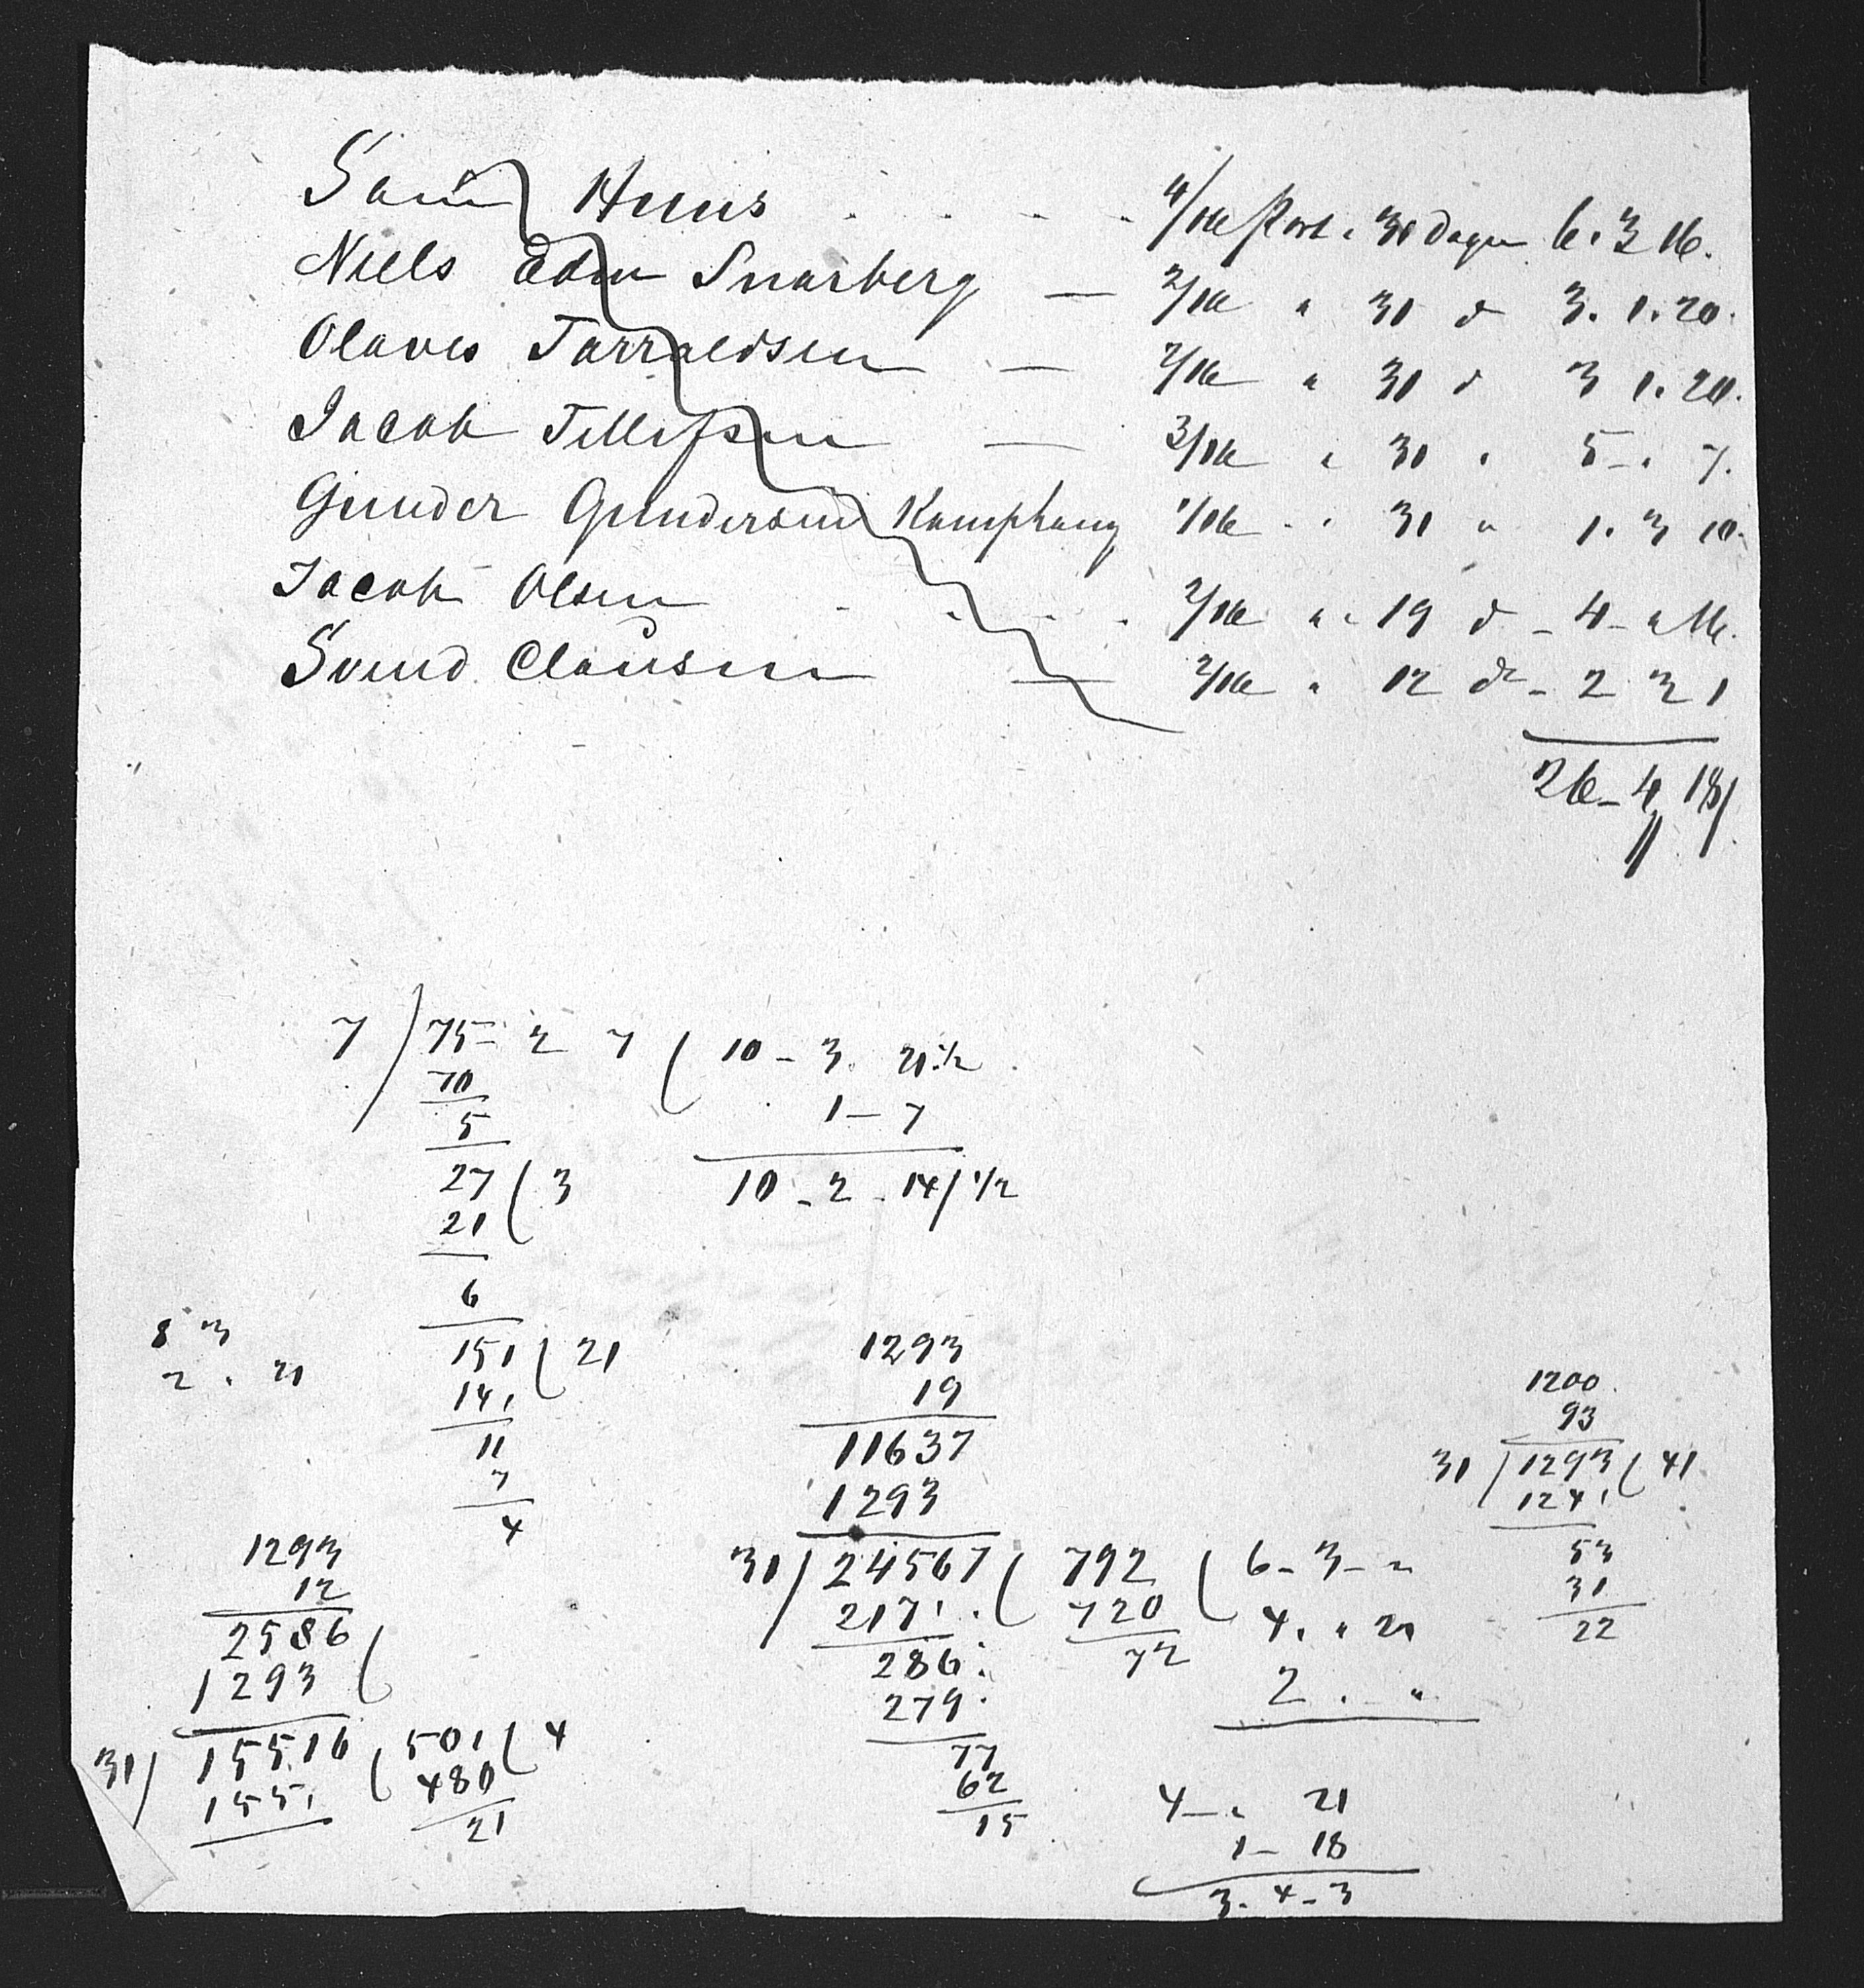 Sam Huus . . . . 4/16 Part " 30 Dage 6. 3 16.
Niels Edw Snarberg — 2/16 " 30 d 3. 1. 20.
Olaves Tarraldsen — 2/16 " 30 d 3 1. 20.
Jacob Tellefsen — 3/16 " 30 " 5 - " 7.
Gunder Gundersen Kamphaug 1/16 - " 30 " 1. 3 10.
Jacob Olsen . . . . 2/16 " " 19 d - 4 - " 16.
Svend Clausen — 2/16 " 12 d - 2 3 1
26 - 4 18/.
7 / 75 - 2 7 ( 10 - 3. 21 1/2
70
1 - 7
5
27 ( 3
10 - 2 - 14 / 1/2
21
6
8 3
151 ( 21
1293
2 . 21
141
19
1200
11
11637
93
7
1293
31 / 1293 ( 41
4
1241
1293
31 / 24567 ( 792 ( 6 - 3 - "
53
12
217 . . 720 4. " 21
31
2586
286. 72
22
1293 (
279. 2 . "
31 / 15516 ( 501 ( 4
77
155. 480
62
4 - " 21
21
15
1 - 18
3. 4 - 3